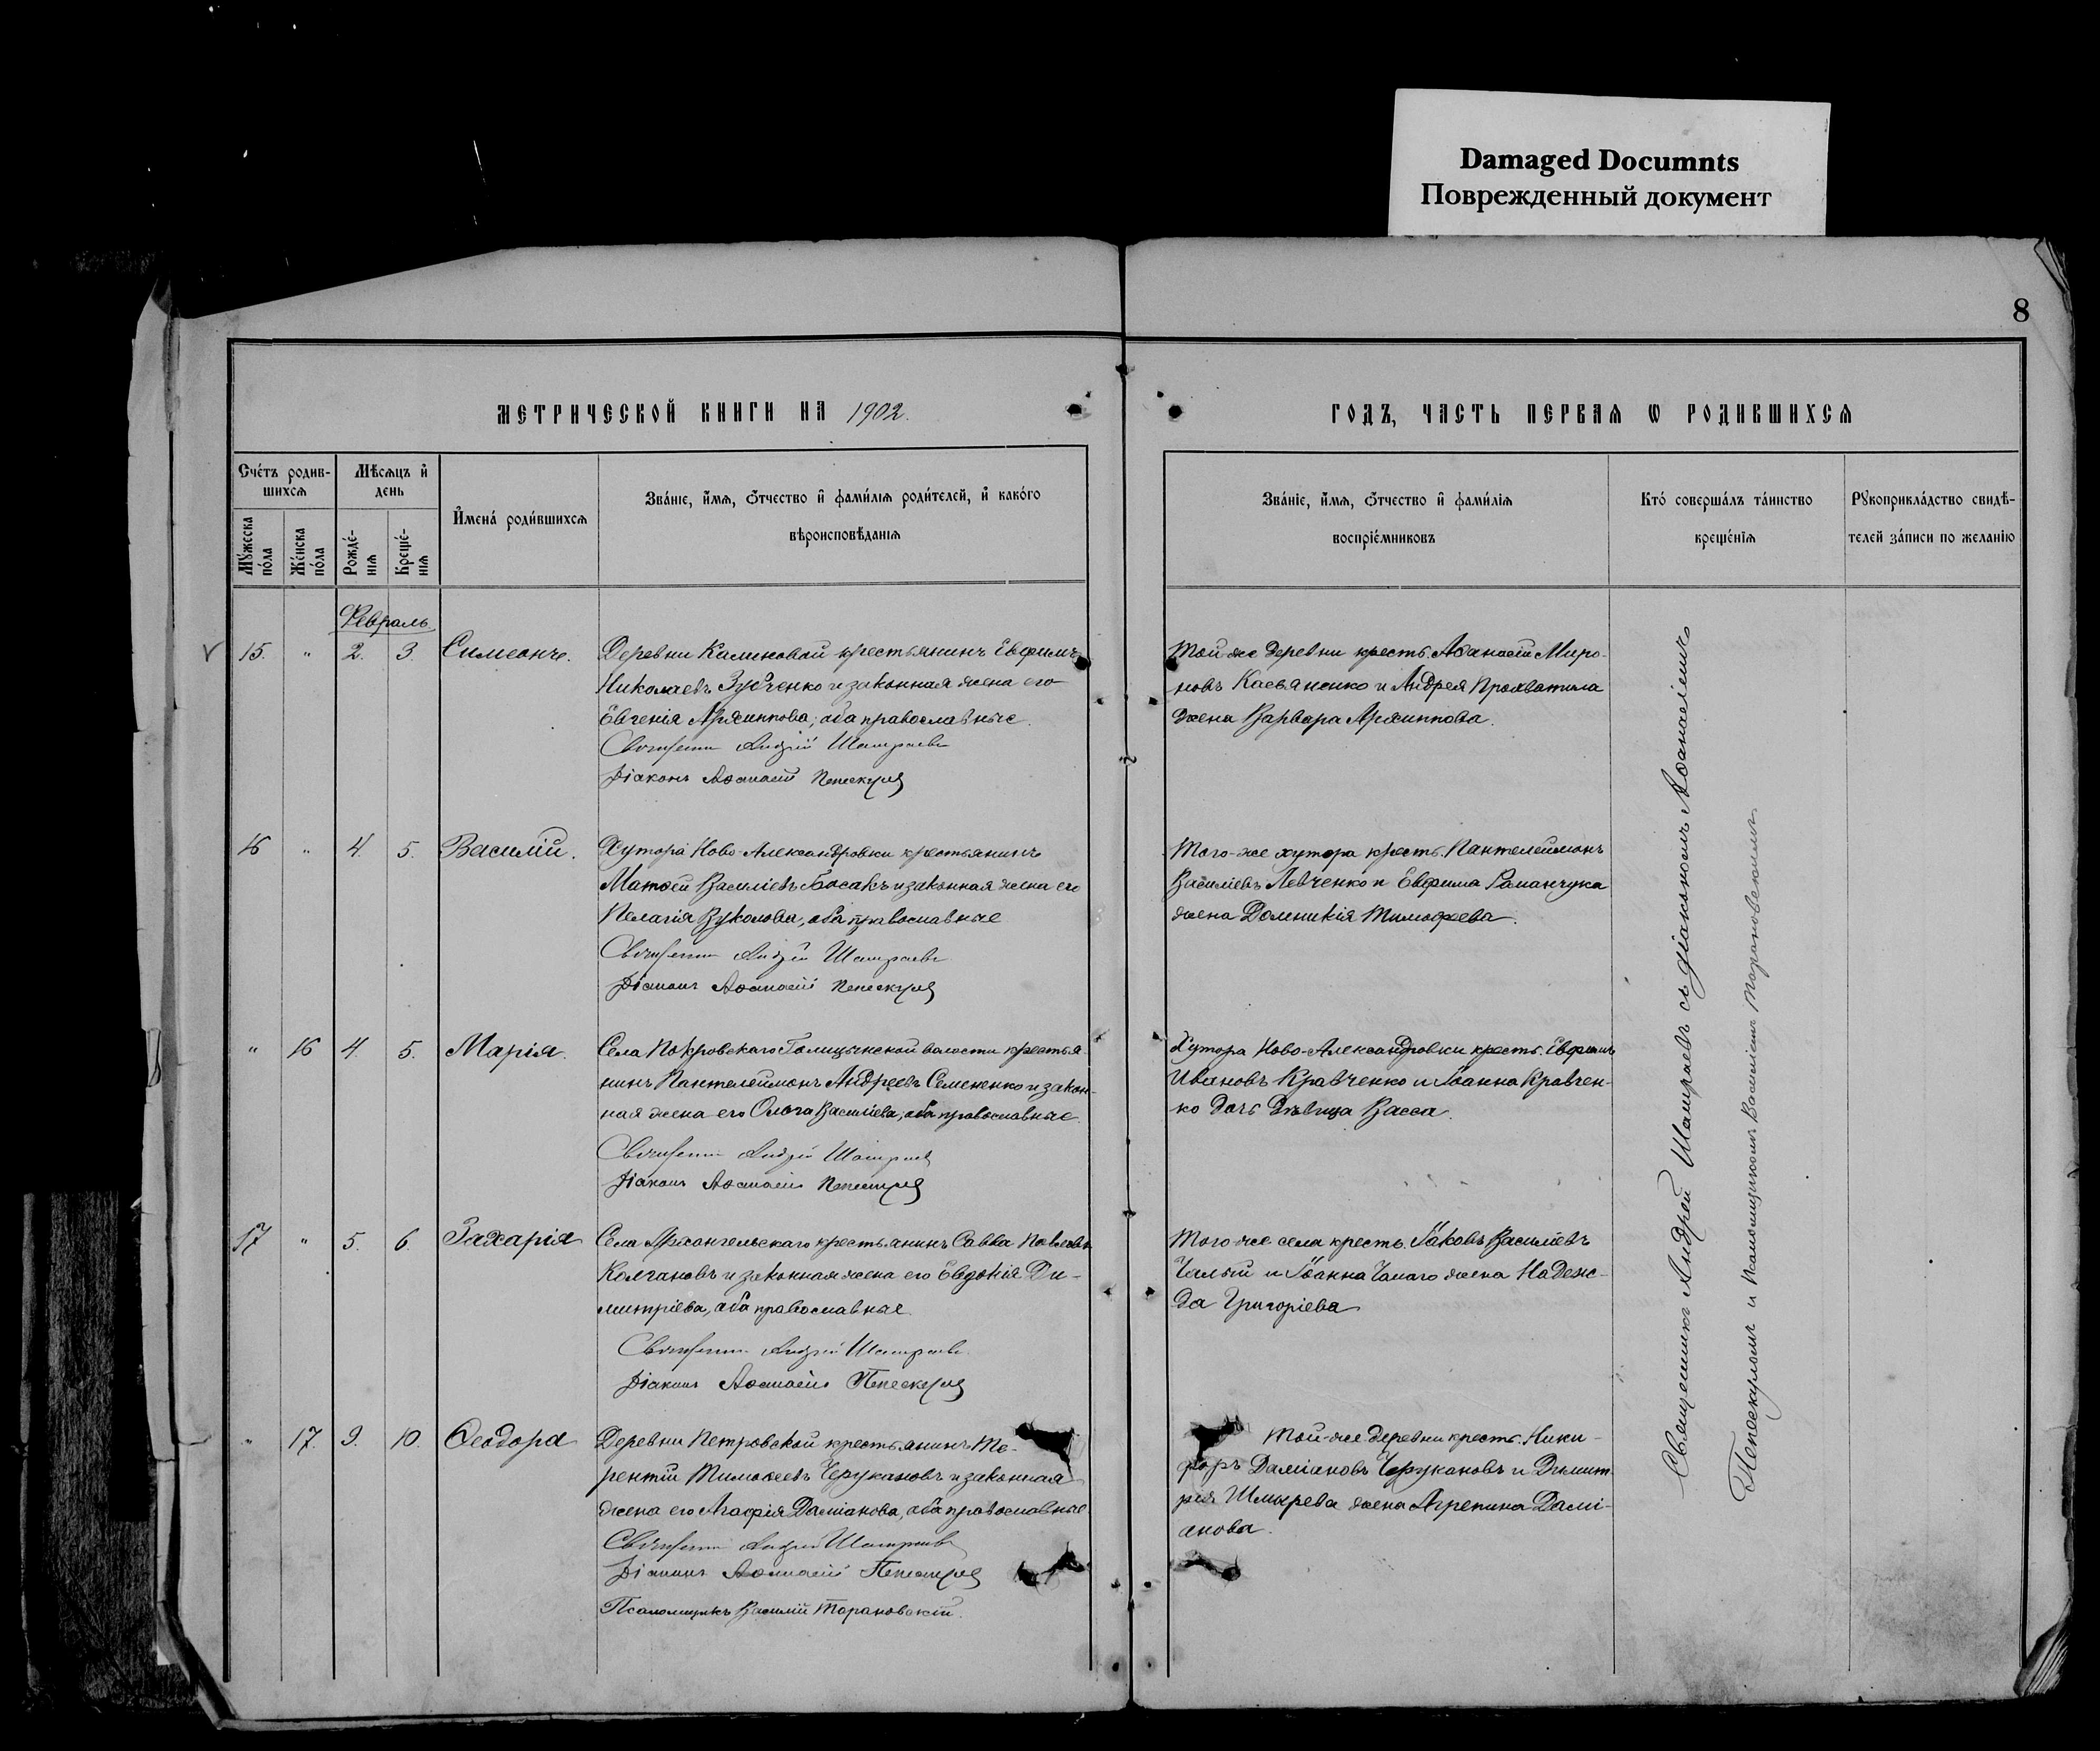 Damaged Documnts
Поврежденный документ
8
МЕТРИЧЕСКОЙ КНИГИ НА 1902.
ГОДЪ, ЧАСТЬ ПЕРВАЯ Ѡ РОДИВШИХСЯ
Счéтъ родив-
шихсѧ
Мꙋ́жеска
пóла
Жéнска
пóла
Мѣсѧцъ и҆
день
Рождé-
нїѧ
Крещé-
нїѧ
И҆менà роди́вшихсѧ
Звáнїе, и҆́мѧ, ѻ҆́тчество и҆ фами́лїѧ роди́телей, и҆ какóгѡ
вѣроисповѣ́данїѧ
Звáнїе, и҆́мѧ, ѻ҆́тчество и҆ фами́лїѧ
воспрїéмниковъ
Ктó совершáлъ тáинство
крещéнїѧ
Рꙋкоприклáдство свидѣ́-
телей зáписи по желáнїю
Февраль
15. " 2. 3. Симеонъ.
Деревни Калиновой крестьянинъ Евфимъ
Николаевъ Зубченко и законная жена его
Евгенія Архиппова, оба православные.
Священникъ Андрей Шатраевъ
Діаконъ Аѳанасій Пепескулъ
Той же деревни кресть. Аѳанасій Миро-
новъ Касьяненко и Андрея Прохватила
жена Варвара Архиппова.
16 " 4. 5. Василій.
Хутора Ново-Александровки крестьянинъ
Матѳей Василіевъ Босакъ и законная жена его
Пелагія Вуколова, оба православные
Священникъ Андрей Шатраевъ
Діаконъ Аѳанасій Пепескулъ
Того-же хутора крестъ. Пантелеймонъ
Василіевъ Левченко и Евфима Романчука
жена Домникія Тимофеева.
" 16 4. 5. Марія.
Села Покровскаго Голицынской волости крестья-
нинъ Пантелеймонъ Андреевъ Семененко и закон-
ная жена его Ольга Василіева, оба православные.
Священникъ Андрей Шатраевъ
Діаконъ Аѳанасій Пепескулъ
Хутора Ново-Александровки крестъ. Евфимъ
Ивановъ Кравченко и Іоанна Кравчен-
ко дочь дѣвица Васса.
17 " 5. 6. Захарія
Села Архангельскаго крестьянинъ Савва Павловъ
Колгановъ и законная жена его Евдокія Ди-
митріева, оба православные.
Священникъ Андрей Шатраевъ
Діаконъ Аѳанасій Пепескулъ
Того-же села крестъ. Іаковъ Василіевъ
Чалый и Іоанна Чалаго жена Надеж-
да Григоріева
" 17. 9. 10. Ѳеодора
Деревни Петровской крестьянинъ Те-
рентій Тимоѳеевъ Черукановъ и законная
жена его Агафія Даміанова, оба православные
Священникъ Андрей Шатраевъ
Діаконъ Аѳанасій Пепескулъ
Псаломщикъ Василій Тарановскій.
Той-же деревни крестъ. Ники-
форъ Даміановъ Черукановъ и Димит
рія Шмырева жена Агрепина Дамі-
анова.
Священникъ Андрей Шатраевъ съ діакономъ Аѳанасіемъ
Пепескуломъ и Псаломщикомъ Василіемъ Тарановскимъ.